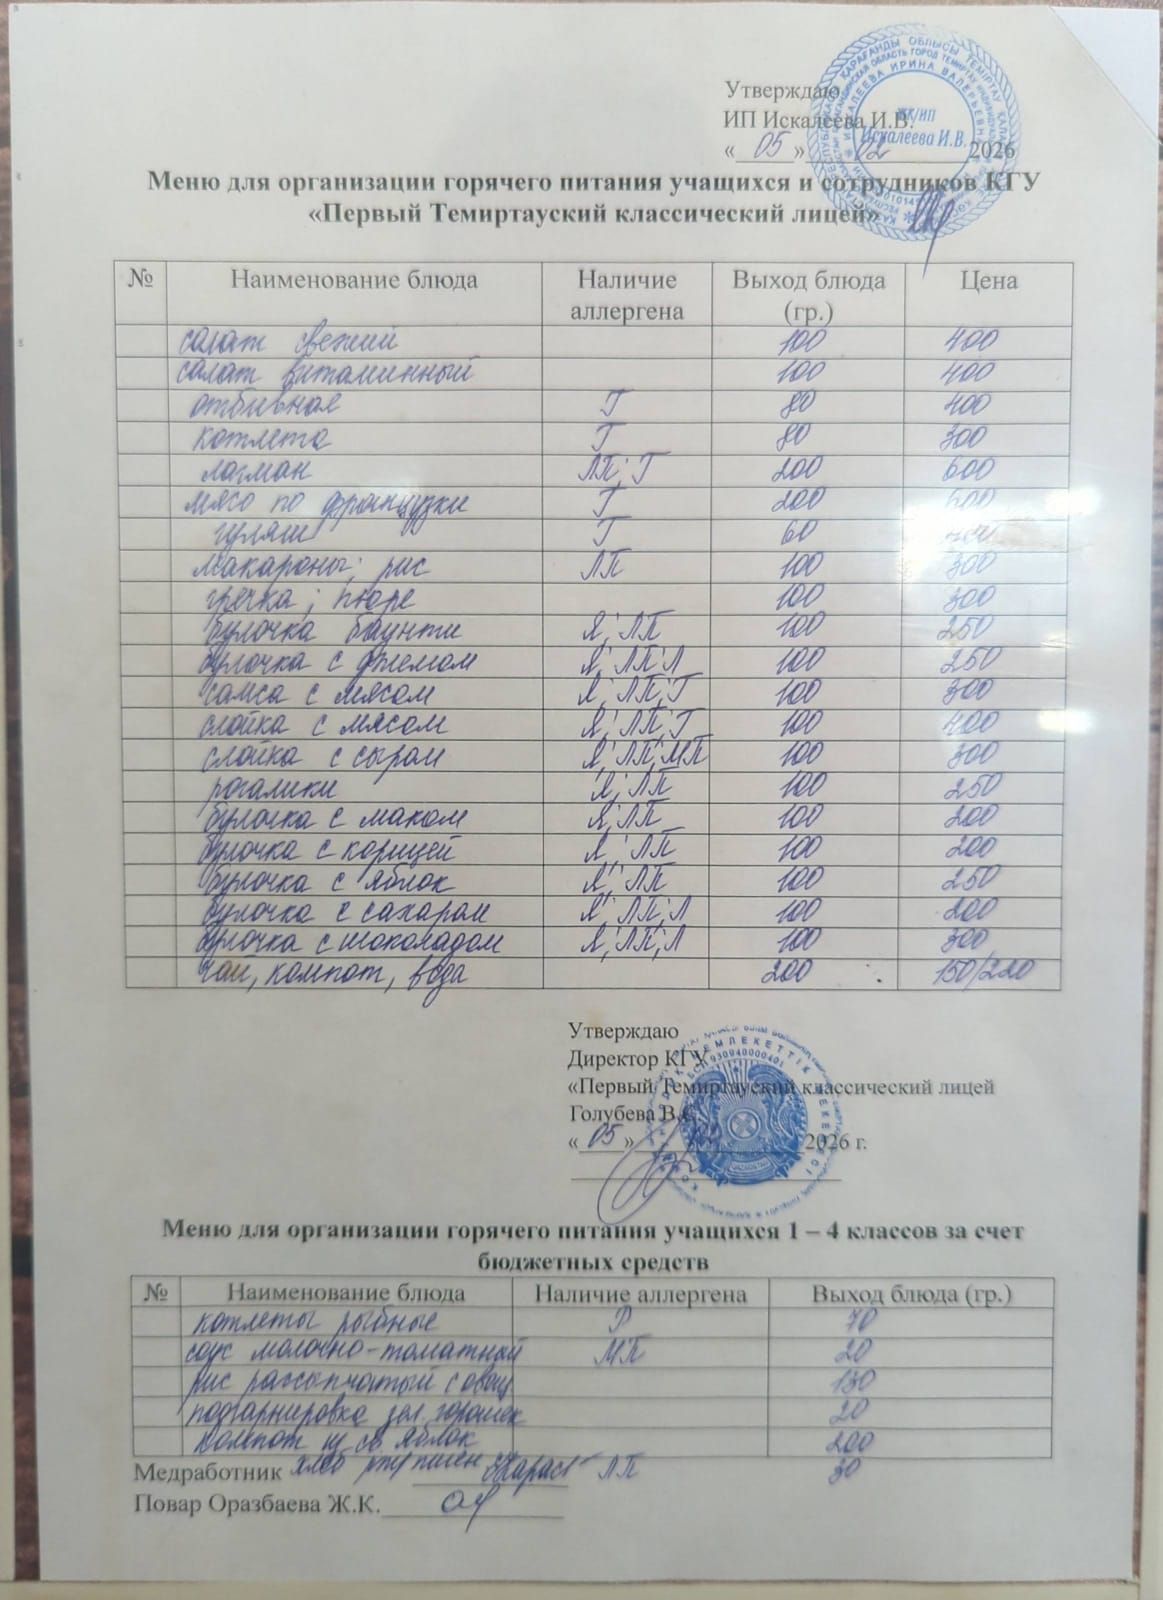 Утверждаю
ИП Искалеева И.В.
« 05 » 02 2026
ЖК/ИП
Искалеева И.В.
Меню для организации горячего питания учащихся и сотрудников КГУ
«Первый Темиртауский классический лицей»
№ Наименование блюда Наличие аллергена Выход блюда (гр.) Цена
салат свежий 100 400
салат витаминный 100 400
отбивная Г 80 400
котлета Г 80 300
лагман ЛП; Г 200 600
мясо по французки Г 200
гуляш Г 60
макароны; рис ЛП 100 300
гречка; пюре 100 300
булочка баунти Я; ЛП 100 250
булочка с джемом Я; ЛП; Л 100 250
самса с мясом Я; ЛП; Г 100 300
слойка с мясом Я; ЛП; Г 100 400
слойка с сыром Я; ЛП; МП 100 300
рогалики Я; ЛП 100 250
булочка с маком Я; ЛП 100 200
булочка с корицей Я; ЛП 100 200
булочка с яблок Я; ЛП 100 250
булочка с сахаром Я; ЛП; Л 100 200
булочка с шоколадом Я; ЛП; Л 100 300
чай, компот, вода 200 150/220
Утверждаю
Директор КГУ
«Первый Темиртауский классический лицей
Голубева В.С.
« 05 » 2026 г.
Меню для организации горячего питания учащихся 1 – 4 классов за счет
бюджетных средств
№ Наименование блюда Наличие аллергена Выход блюда (гр.)
котлеты рыбные Р 70
соус молочно-томатный МП 20
рис рассыпчатый с овощ 130
подгарнировка зел. горошек 20
компот из св яблок 200
Медработник хлеб рж/пшен ЛП 30
Повар Оразбаева Ж.К.